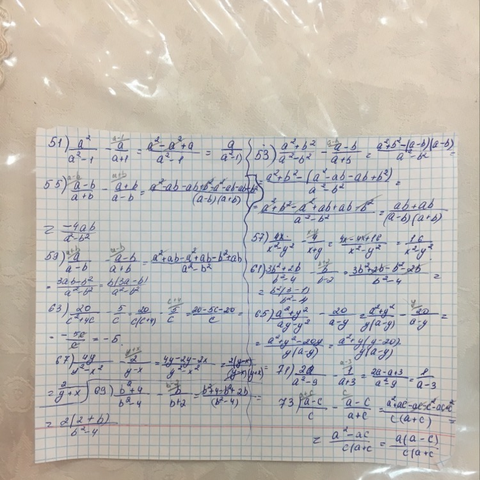 51) a²/(a²-1) - a/(a+1) = (a²-a²+a)/(a²-1) = a/(a²-1)
53) (a²+b²)/(a²-b²) - (a-b)/(a+b) = (a²+b²-(a-b)(a-b))/(a²-b²) =
= (a²+b²-(a²-ab-ab+b²))/(a²-b²) =
= (a²+b²-a²+ab+ab-b²)/(a²-b²) = (ab+ab)/((a-b)(a+b))
55) (a-b)/(a+b) - (a+b)/(a-b) = (a²-ab-ab+b²-a²-ab-ab-b²)/((a-b)(a+b))
= -4ab/(a²-b²)
57) 4x/(x²-y²) - 4/(x+y) = /(x²-y²) = 16/(x²-y²)
59) a/(a-b) - (a-b)/(a+b) = (a²+ab-a²+ab-b²+ab)/(a²-b²)
= (3ab-b²)/(a²-b²) = b(3a-b)/(a²-b²)
61) (3b²+2b)/(b²-4) - b/(b-2) = (3b²+2b-b²-2b)/(b²-4) =
63) 20/(c²+4c) - 5/c = 20/(c(c+4)) - 5/c = (20-5c-20)/c
= = -5
65) (a²+y²)/(ay-y²) - 20/(a-y) = (a²+y²)/(y(a-y)) - 20/(a-y) =
= (a²+y²-20y)/(y(a-y)) = (a²+y(y-20))/(y(a-y))
67) 4y/(y²-x²) - 2/(y-x) = (4y-2y-2x)/(y²-x²) = 2(y-x)/((y-x)(y+x))
= 2/(y+x)
69) (b²+4)/(b²-4) - b/(b+2) = /(b²-4)
= 2(2+b)/(b²-4)
71) 2a/(a²-9) - 1/(a+3) = (2a-a+3)/(a²-9) = /(a-3)
73) (a-c)/c - (a-c)/(a+c) = /(c(a+c)) =
= (a²-ac)/(c(a+c)) = a(a-c)/(c(a+c))